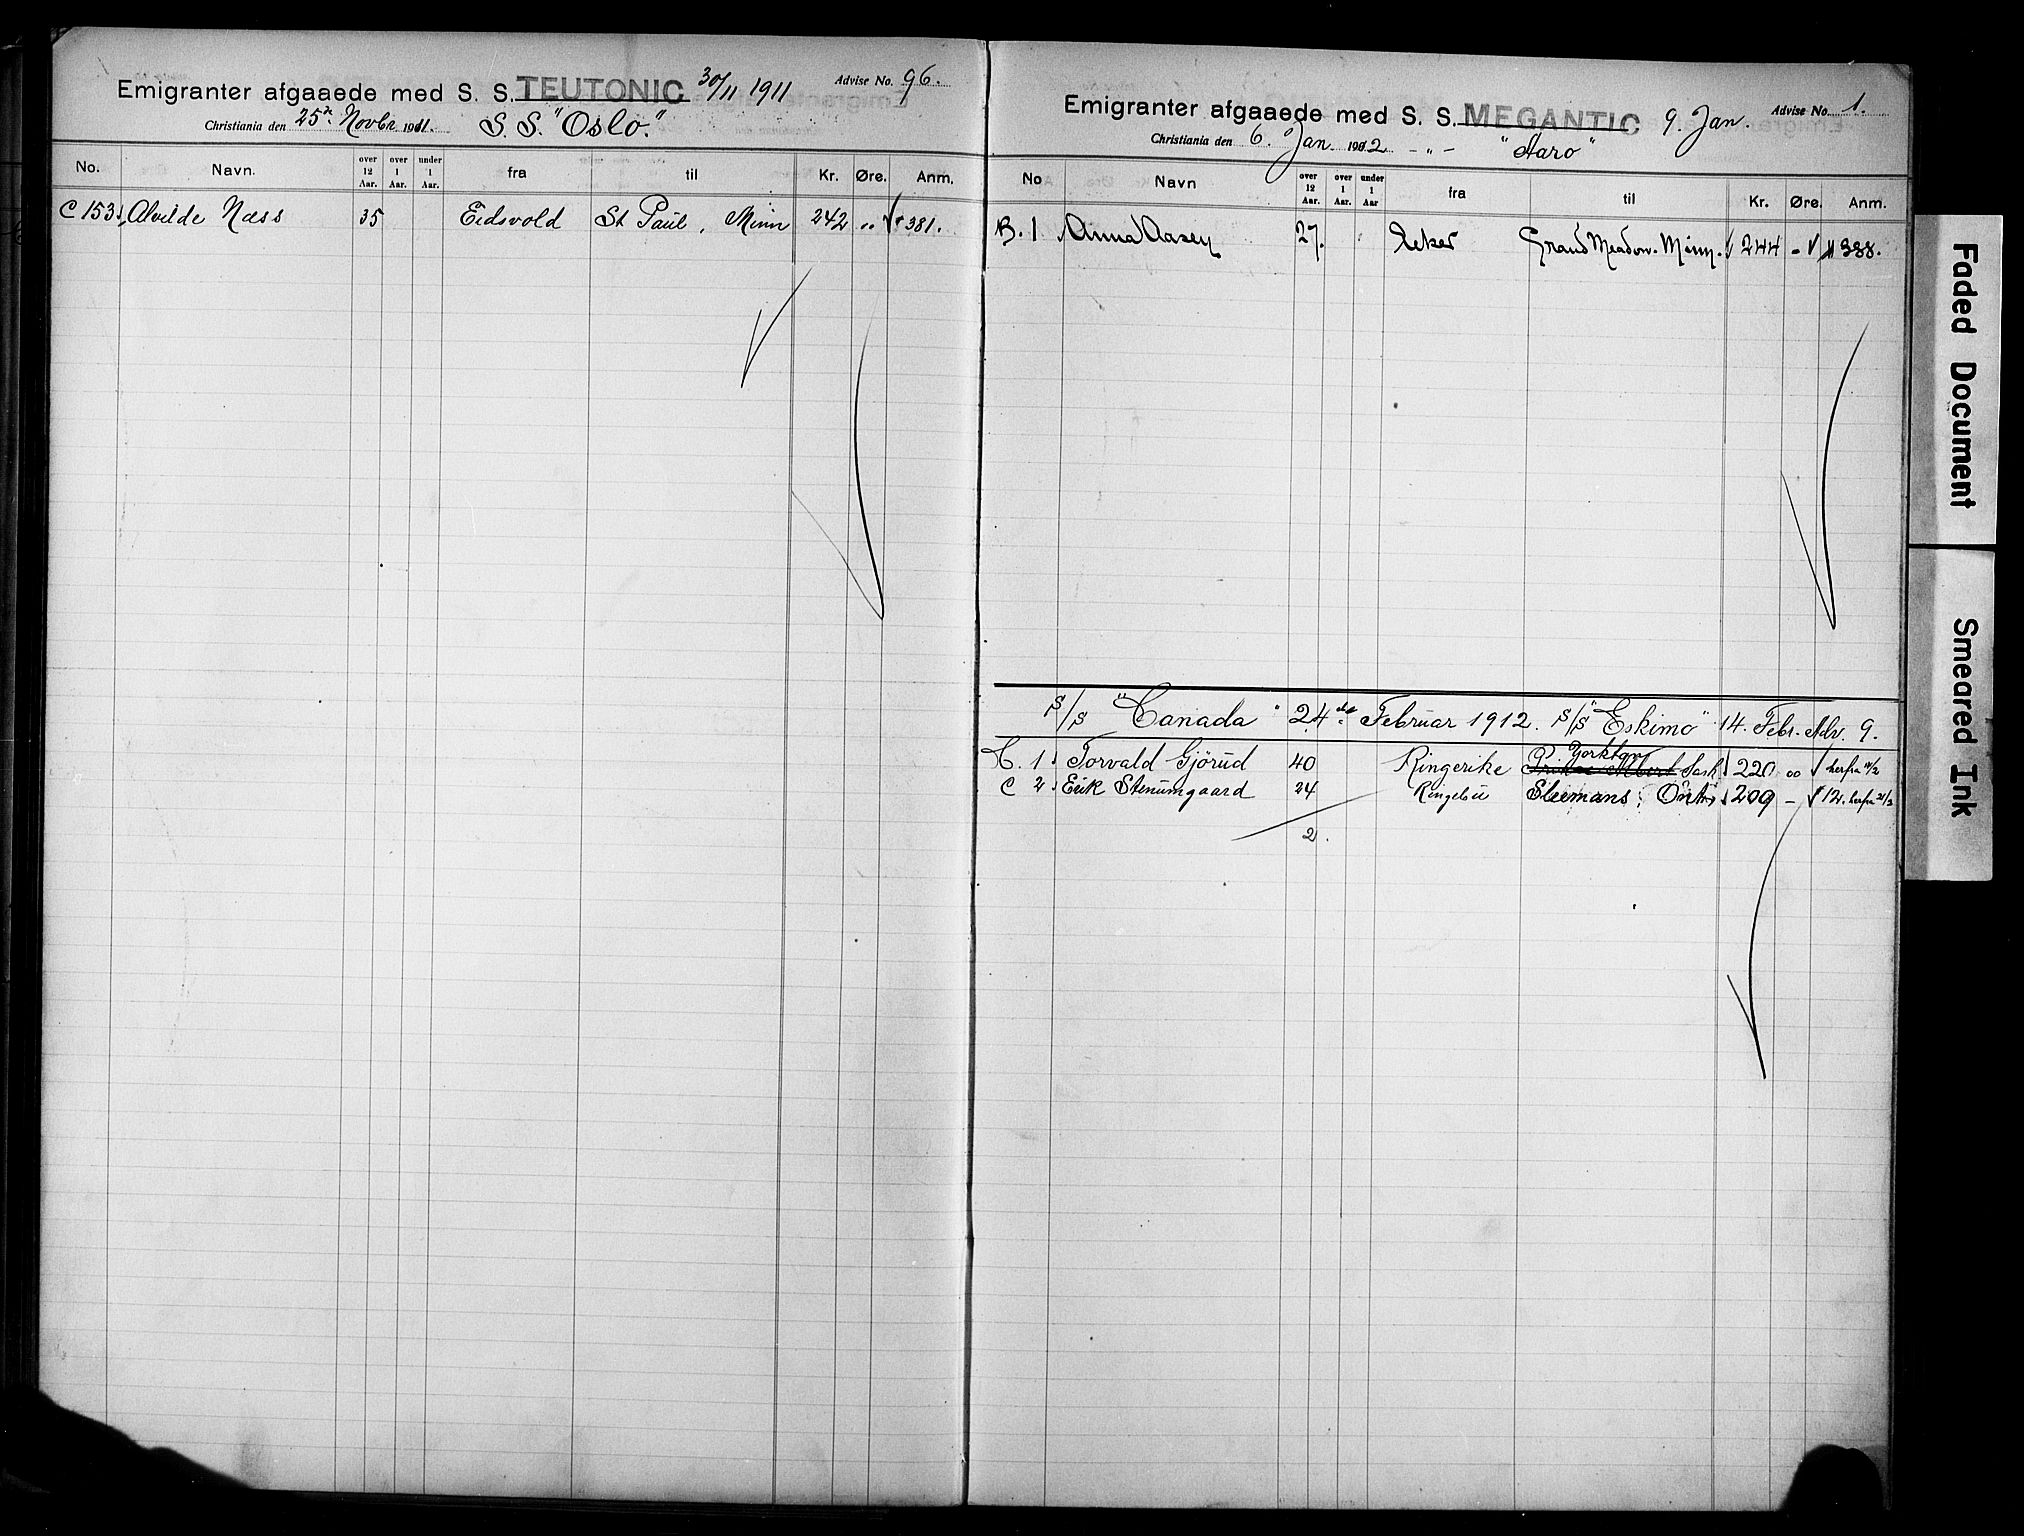 Emigranter afgaaede med S. S. TEUTONIC 30/11 1911 Advise No. 96.
Christiania den 25de Novbr 1911. S. S. "Oslo."
No. Navn. over 12 Aar. over 1 Aar. under 1 Aar. fra til Kr. Øre. Anm.
C 153 Alvilde Næss 35 Eidsvold St Paul, Minn 242 " 381.
Emigranter afgaaede med S. S. MEGANTIC 9. Jan. Advise No. 1.
Christiania den 6. Jan. 1912 - " - "Aaro"
No Navn over 12 Aar. over 1 Aar. under 1 Aar fra til Kr. Øre. Anm.
B. 1 Anna Aasen 27. Aker Grand Meadow. Minn. 244 - 388.
S/S "Canada" 24de Februar 1912. S/S "Eskimo" 14. Febr. Adv. 9.
C. 1 Torvald Gjørud 40 Ringerike Yorkton Sask 220 00 herfra
C 2 Erik Stenumgaard 24 Ringebu Sleemans, Ont 209 - 12. herfra
2.
Faded Document
Smeared Ink